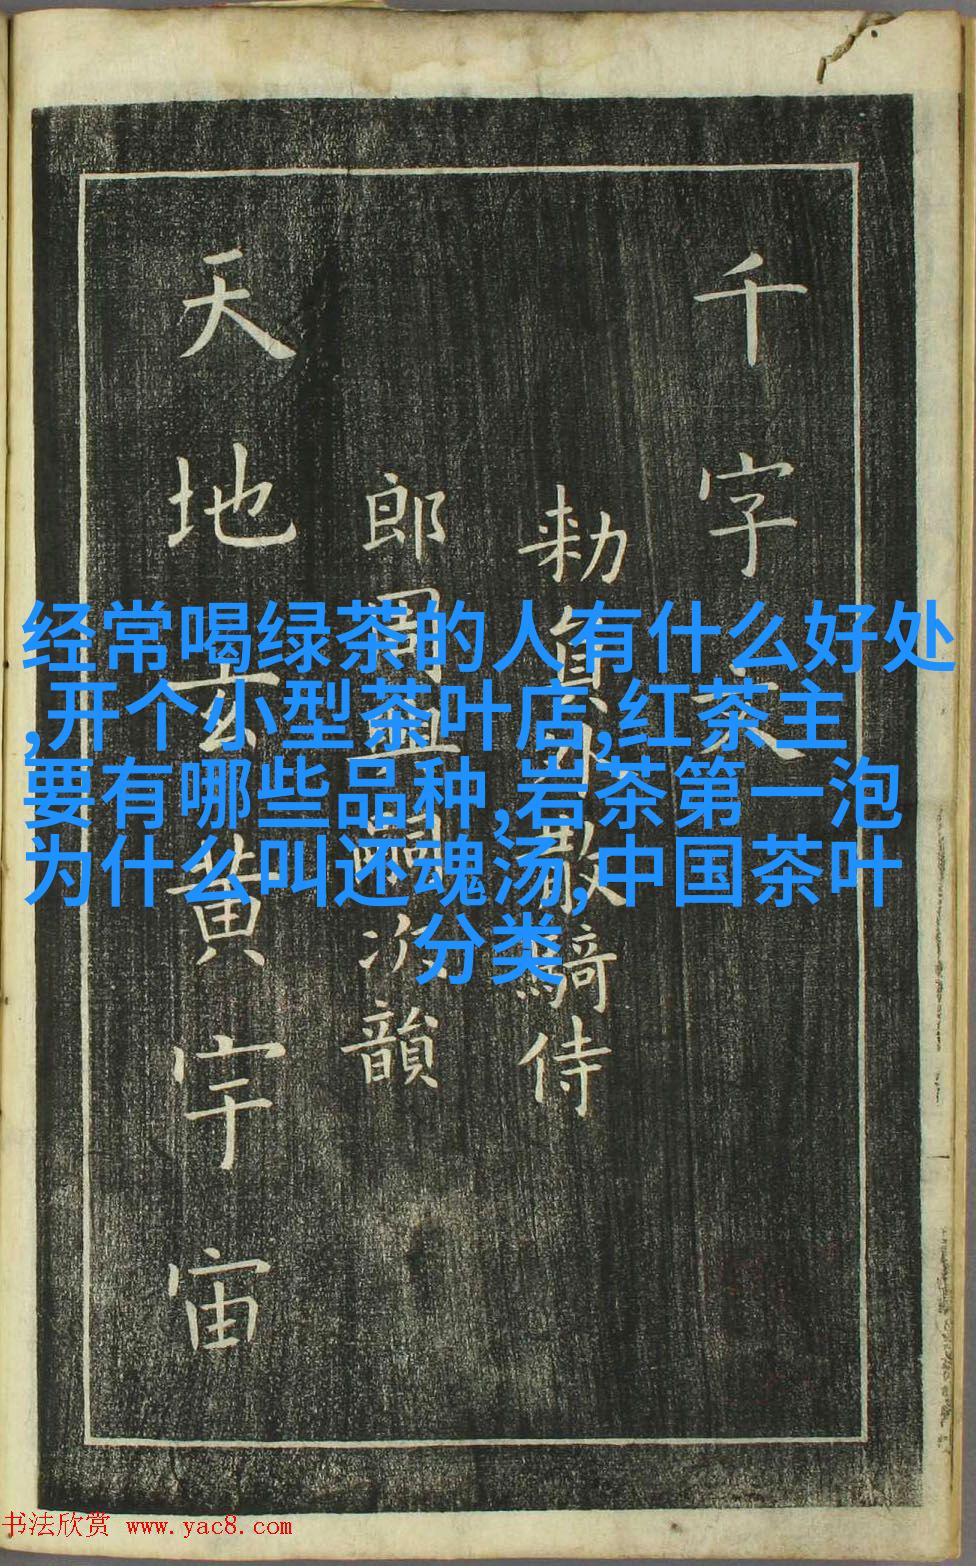 千字文
勅員外散騎侍
郎周興嗣次韻
天地玄黄宇宙
经常喝绿茶的人有什么好处
,开个小型茶叶店,红茶主
要有哪些品种,岩茶第一泡
为什么叫还魂汤,中国茶叶
分类
书法欣赏 www.yac8.com